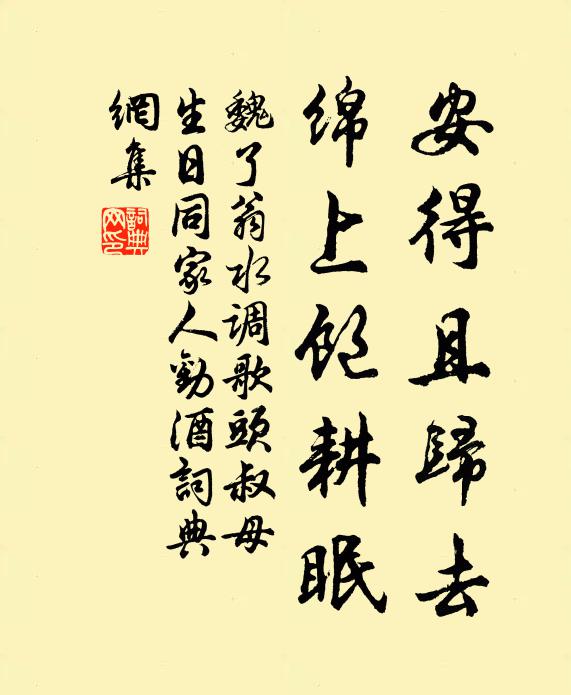 安得且歸去
綿上飽耕眠
魏了翁水调歌頭叔母
生日同家人勸酒詞典
網集
詞典网印